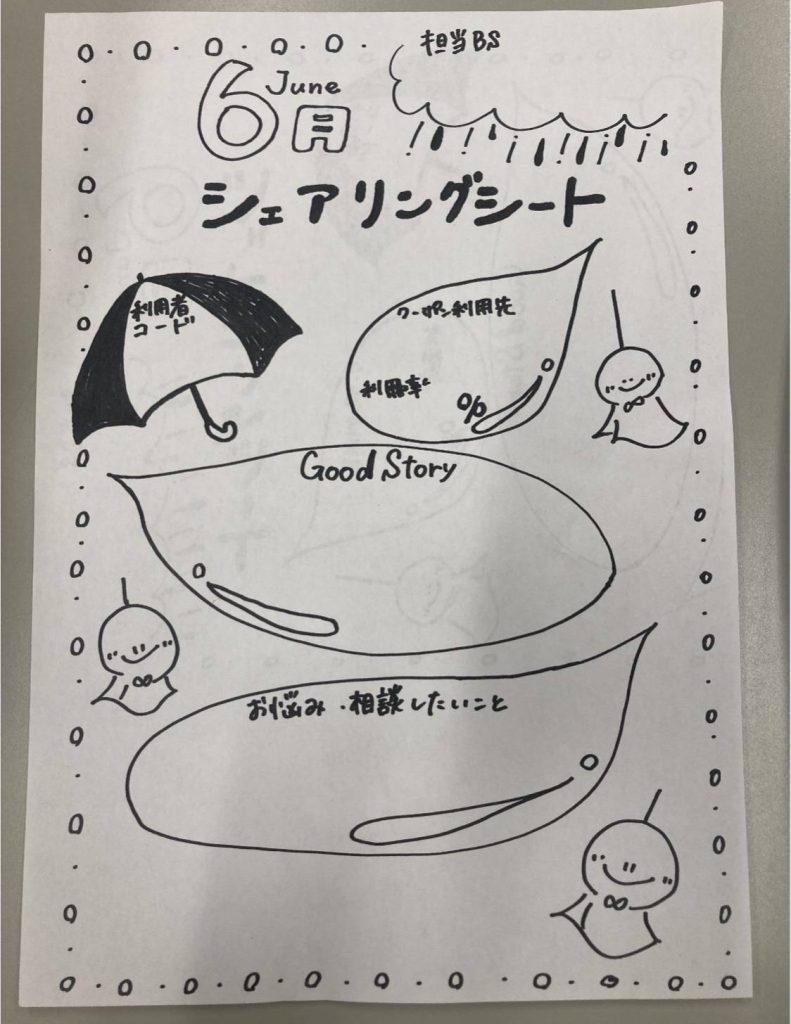 担当BS
June
6月
シェアリングシート
利用者
コード
クーポン利用先
利用率
%
Good Story
お悩み・相談したいこと